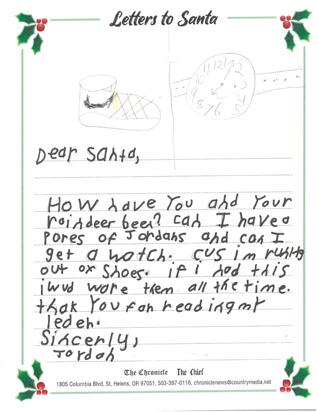 Letters to Santa
11 12 1
10 2
9 3
8 4
7 6 5
Dear Santa,
How have You and Your
raindeer been? can I have a
pores of Jordans and can I
get a watch. cus im runing
out ox Shoes. if i had this
iwud ware them all the time.
thak You for reading my
leder.
Sincerly,
Jordan
The Chronicle The Chief
1805 Columbia Blvd, St. Helens, OR 97051, 503-397-0116, chroniclenews@countrymedia.net